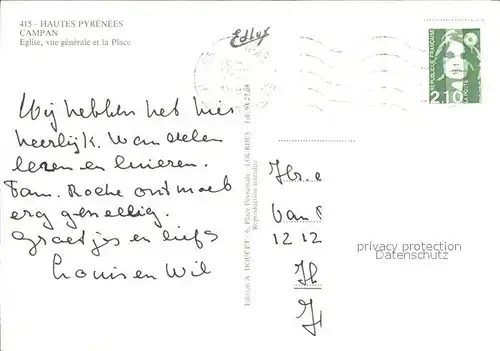 415 - HAUTES PYRÉNÉES
CAMPAN
Eglise, vue générale et la Place
Edlux
RÉPUBLIQUE FRANÇAISE
2,10
LA POSTE
Wij hebben het hier
heerlijk. Wandelen
lezen en luieren.
Fam. Roche ontmoet
erg gezellig.
Groetjes en liefs
Louis en Wil
Edition A. DOUCET - 6, Place Peyramale - LOURDES - Tél. 94.27.08
Reproduction interdite
Hr. e
Van
1212
privacy protection
Datenschutz